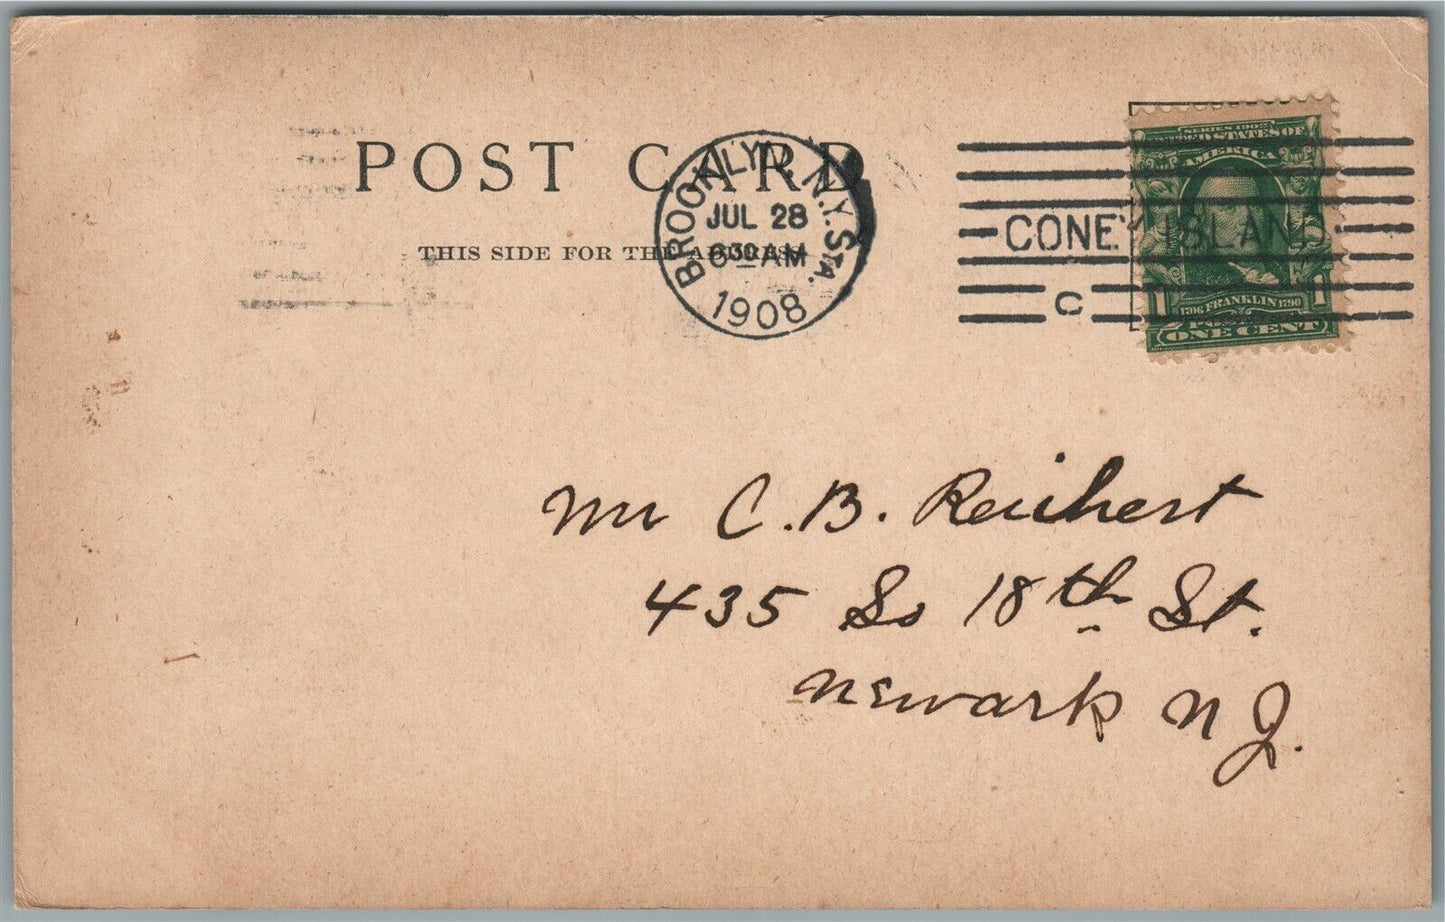 POST CARD
THIS SIDE FOR THE ADDRESS
BROOKLYN, N.Y. STA.
JUL 28
630 AM
1908
CONEY ISLAND.
C
SERIES 1902
UNITED STATES OF
AMERICA
1 1706 FRANKLIN 1790 1
ONE CENT
Mr C. B. Reichert
435 So 18th St.
Newark N J.